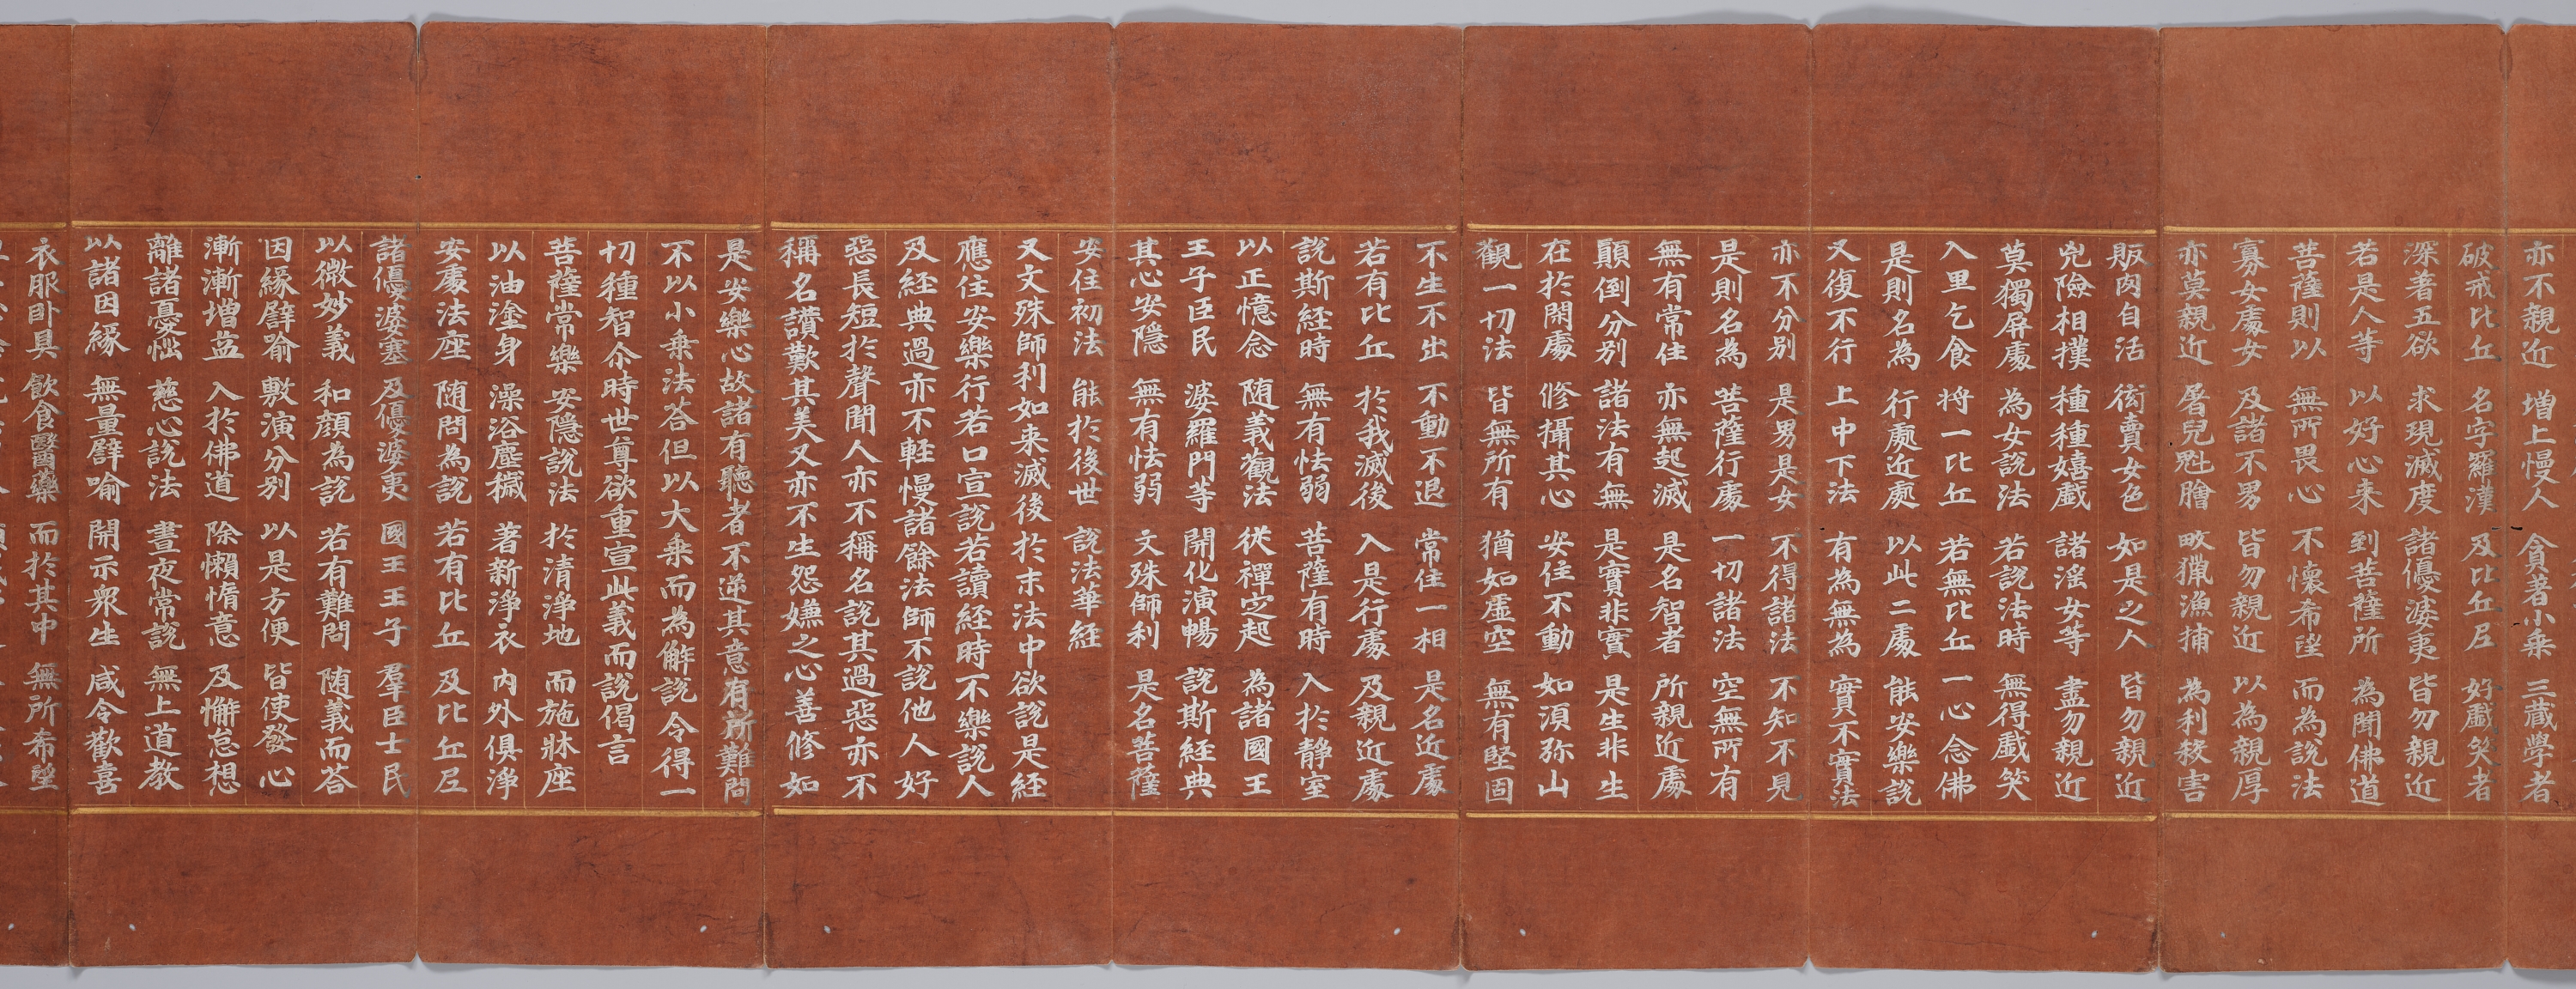 亦不親近 增上慢人 貪著小乘 三蔵學者
破戒比丘 名字羅漢 及比丘尼 好戲笑者
深著五欲 求現滅度 諸優婆夷 皆勿親近
若是人等 以好心来 到菩薩所 為聞佛道
菩薩則以 無所畏心 不懷希望 而為說法
寡女處女 及諸不男 皆勿親近 以為親厚
亦莫親近 屠兒魁膾 畋獵漁捕 為利殺害
販肉自活 衒賣女色 如是之人 皆勿親近
兇險相撲 種種嬉戲 諸淫女等 盡勿親近
莫獨屏處 為女說法 若說法時 無得戲笑
入里乞食 将一比丘 若無比丘 一心念佛
是則名為 行處近處 以此二處 能安樂說
又復不行 上中下法 有為無為 實不實法
亦不分別 是男是女 不得諸法 不知不見
是則名為 菩薩行處 一切諸法 空無所有
無有常住 亦無起滅 是名智者 所親近處
顛倒分別 諸法有無 是實非實 是生非生
在於閑處 修攝其心 安住不動 如須弥山
觀一切法 皆無所有 猶如虛空 無有堅固
不生不出 不動不退 常住一相 是名近處
若有比丘 於我滅後 入是行處 及親近處
說斯経時 無有怯弱 菩薩有時 入於静室
以正憶念 随義觀法 従禪定起 為諸國王
王子臣民 婆羅門等 開化演暢 說斯経典
其心安隱 無有怯弱 文殊師利 是名菩薩
安住初法 能於後世 說法華経
又文殊師利如来滅後於末法中欲說是経
應住安樂行若口宣說若讀経時不樂說人
及経典過亦不軽慢諸餘法師不說他人好
惡長短於聲聞人亦不稱名說其過惡亦不
稱名讃歎其美又亦不生怨嫌之心善修如
是安樂心故諸有聽者不逆其意有所難問
不以小乗法荅但以大乗而為解說令得一
切種智尒時世尊欲重宣此義而說偈言
菩薩常樂 安隱說法 於清淨地 而施牀座
以油塗身 澡浴塵穢 著新淨衣 內外俱淨
安處法座 随問為說 若有比丘 及比丘尼
諸優婆塞 及優婆夷 國王王子 羣臣士民
以微妙義 和顏為說 若有難問 随義而荅
因緣譬喻 敷演分別 以是方便 皆使發心
漸漸增益 入於佛道 除懶惰意 及懈怠想
離諸憂惱 慈心說法 晝夜常說 無上道教
以諸因緣 無量譬喻 開示衆生 咸令歡喜
衣服卧具 飲食醫藥 而於其中 無所希望